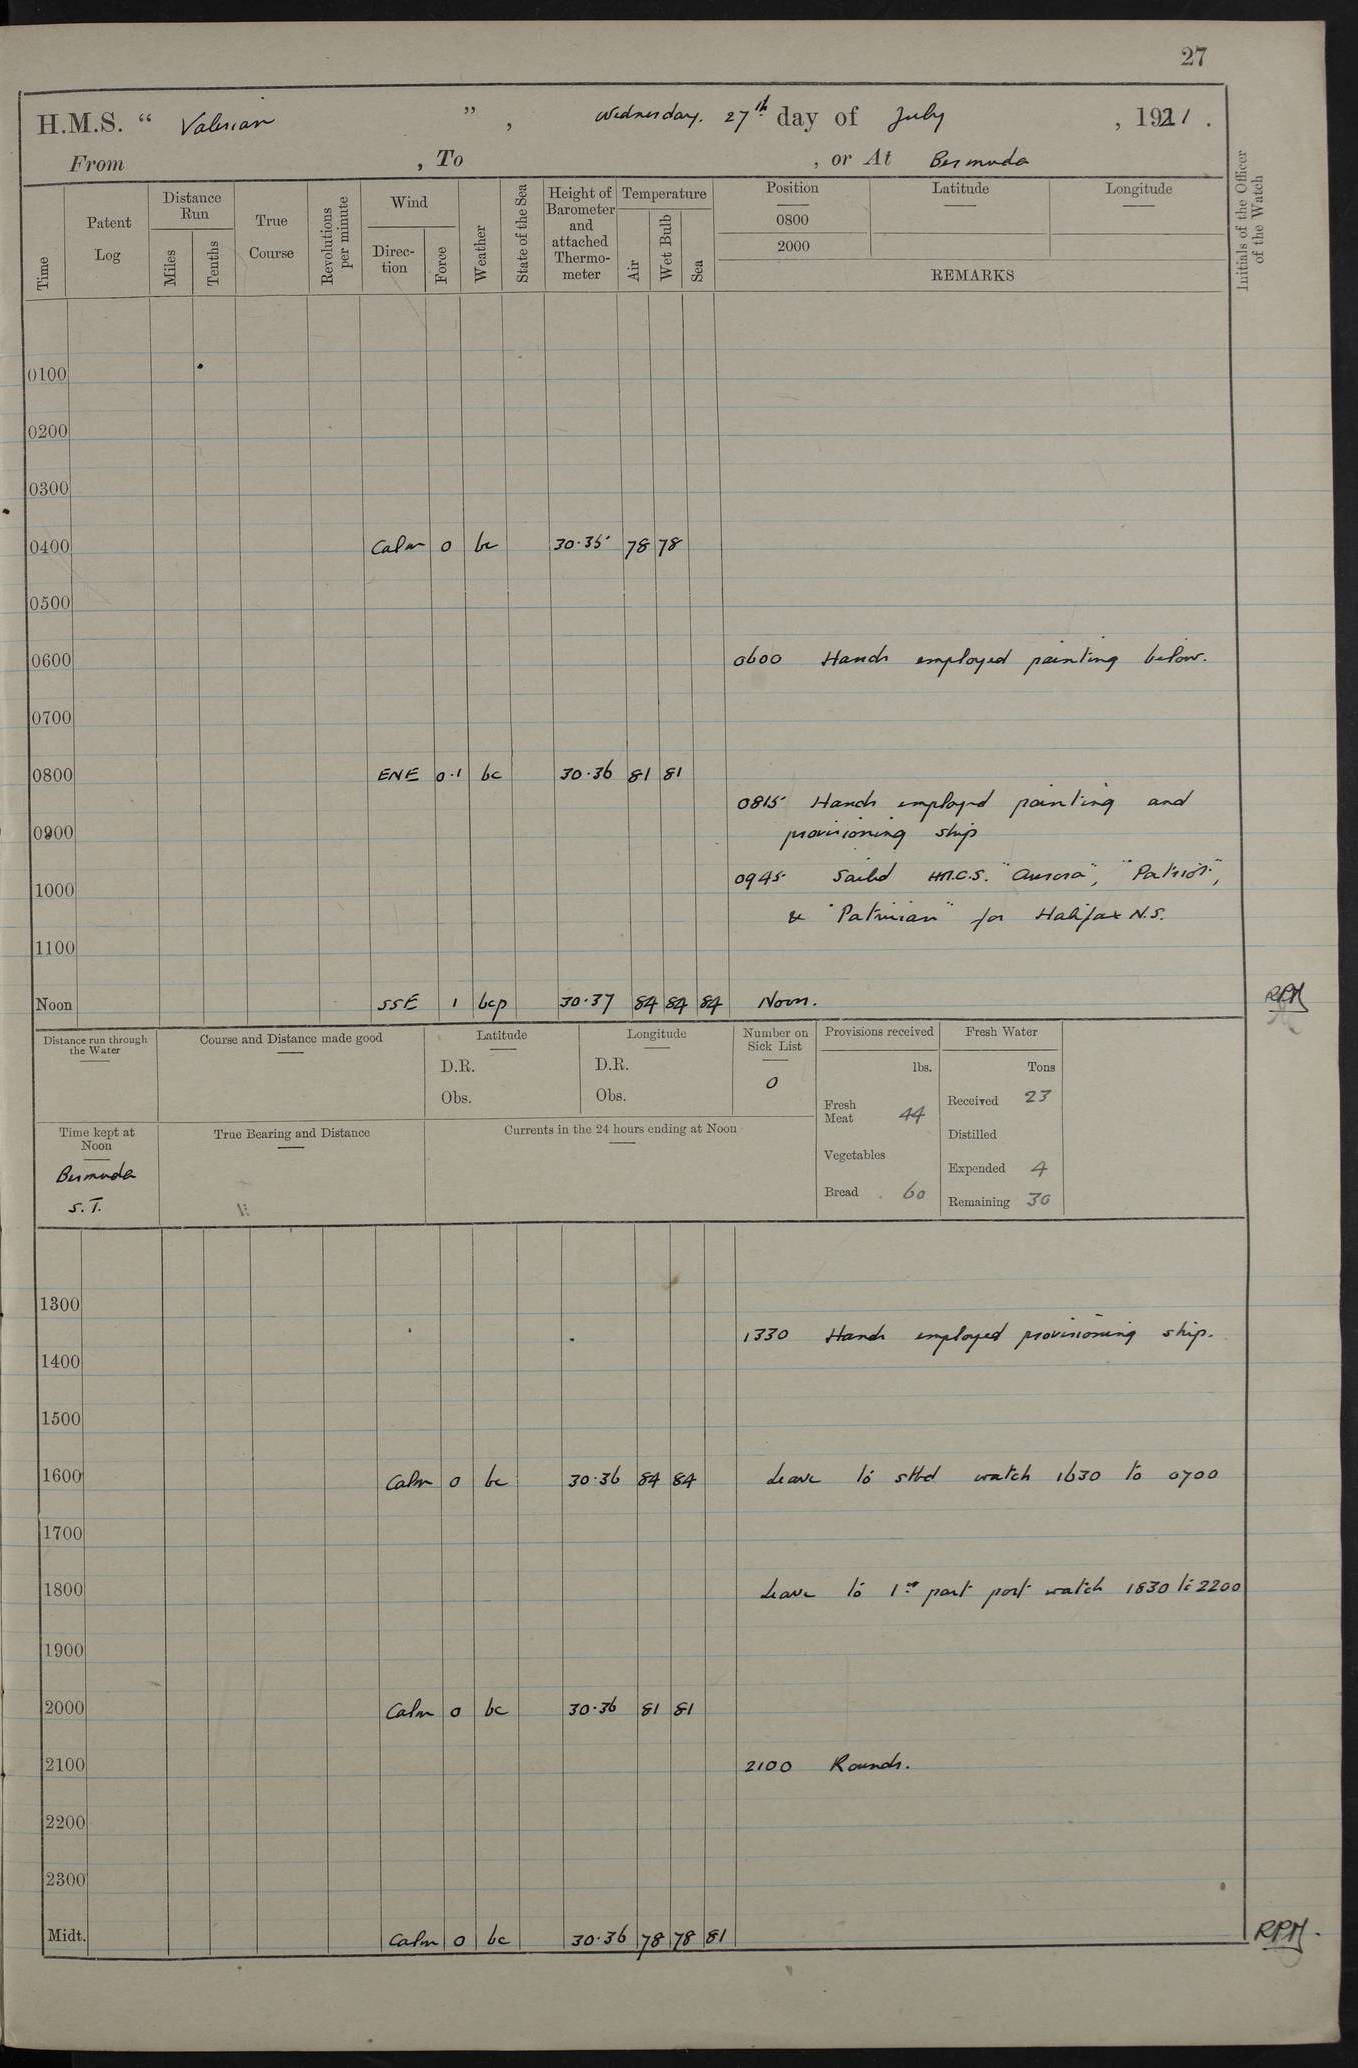 27
H.M.S. “ Valerian ” , Wednesday. 27th day of July , 1921 .
From , To , or At Bermuda
Time
Patent Log
Distance Run
Miles
Tenths
True Course
Revolutions per minute
Wind
Direc-tion
Force
Weather
State of the Sea
Height of Barometer and attached Thermo-meter
Temperature
Air
Wet Bulb
Sea
Position
0800
2000
Latitude
Longitude
REMARKS
Initials of the Officer of the Watch
0100
0200
0300
0400 Calm 0 bc 30.35 78 78
0500
0600 0600 Hands employed painting below.
0700
0800 ENE 0.1 bc 30.36 81 81
0815 Hands employed painting and
0900 provisioning ship
0945 Sailed H.M.C.S. "Aurora", "Patriot",
1000
& "Patrician" for Halifax N.S.
1100
Noon SSE 1 bcp 30.37 84 84 84 Noon. RPM
Distance run through the Water
Course and Distance made good
Latitude
D.R.
Obs.
Longitude
D.R.
Obs.
Number on Sick List
0
Provisions received
lbs.
Fresh Meat 44
Vegetables
Bread 60
Fresh Water
Tons
Received 23
Distilled
Expended 4
Remaining 30
Time kept at Noon
Bermuda
S.T.
True Bearing and Distance
Currents in the 24 hours ending at Noon
1300
1330 Hands employed provisioning ship.
1400
1500
1600 Calm 0 bc 30.36 84 84 Leave to stbd watch 1630 to 0700
1700
1800 Leave to 1st part port watch 1830 to 2200
1900
2000 Calm 0 bc 30.36 81 81
2100 2100 Rounds.
2200
2300
Midt. Calm 0 bc 30.36 78 78 81 RPM.